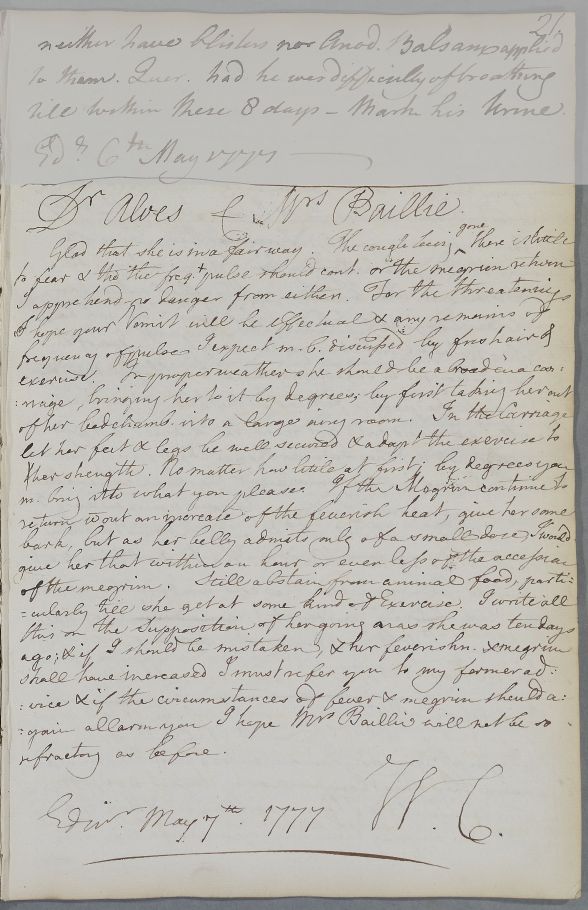 21.
neither have blisters nor Anod. Balsam applied
to them. Quer. had he was difficulty of breathing
till within these 8 days – Mark his Urine.
Edr. 6th May 1777
Dr Alves C. Mrs Baillie.
Glad that she is in a fair way. The cough being gone there is little
to fear & tho the freqt pulse should cont. or the megrim return
I apprehend no danger from either. For the threatenings
I hope your Vomit will be effectual & any remains of
frequency of pulse I expect m. b. discussed by fresh air &
exercise. In proper weather she should be abroad in a car:
:riage, bringing her to it by degrees; by first taking her out
of her bedchamb. into a large airy room. In the Carriage
let her feet & legs be well secured & adapt the exercise to
her strength. No matter how little at first; by degrees you
m. bring it to what you please. If the Megrim continue to
return wout an increase of the feverish heat, give her some
bark, but as her belly admits only of a small dose, I would
give her that within an hour or even less of the accession
of the megrim. Still abstain from animal food, parti:
:cularly till she get at some kind of Exercise, I write all
this on the Supposition of her going on as she was ten days
ago; & if I should be mistaken, & her feverishn. & megrim
shall have increased I must refer you to my former ad:
:vice & if the circumstances of fever & megrim should a:
:gain allarm you I hope Mrs Baillie will not be so
refractory as before.
W. C.
Edinr. May 7th. 1777